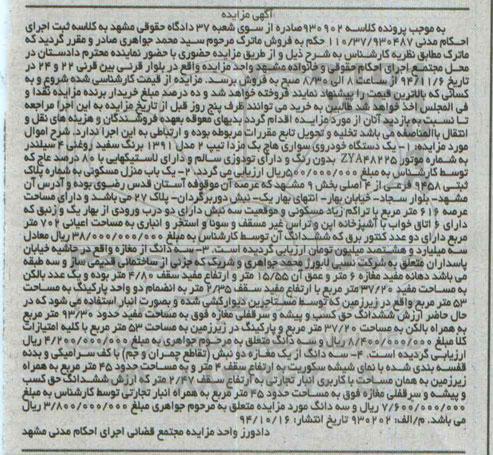 آگهی مزایده
به موجب پرونده کلاسه ۹۳۰۹۰۲ صادره از سوی شعبه ۳۷ دادگاه حقوقی مشهد به کلاسه ثبت اجرای
احکام مدنی ۱۱۰/۳۷/۹۳۰۴۸۷ حکم به فروش ماترک مرحوم سید محمد جواهری صادر و مقرر گردید که
ماترک مطابق نظریه کارشناس به شرح ذیل و از طریق مزایده حضوری با حضور نماینده محترم دادستان در
محل مجتمع اجرای احکام حقوقی و خانواده مشهد واحد مزایده واقع در بلوار قرنی بین قرنی ۲۲ و ۲۴ در
تاریخ ۹۴/۱۱/۶ از ساعت ۸ الی ۸/۳۰ صبح به فروش برسد. مزایده از قیمت کارشناسی شده شروع و به
کسانی که بالاترین قیمت را پیشنهاد نمایند فروخته خواهد شد و ده درصد مبلغ خریدار برنده مزایده نقدا و
فی المجلس اخذ خواهد شد طالبین به خرید می توانند ظرف پنج روز قبل از تاریخ مزایده به این اجرا مراجعه
تا نسبت به بازدید آنان از مورد مزایده اقدام گردد بدیهای معوقه بعهده فروشندگان و هزینه های نقل و
انتقال بالمناصفه می باشد تخلیه و تحویل تابع مقررات مربوطه بوده و ارتباطی به این اجرا ندارد. شرح اموال
مورد مزایده: ۱- یک دستگاه خودروی سواری هاچ بک مزدا تیپ ۲ مدل ۱۳۹۱ برنگ سفید روغنی ۴ سیلندر
به شماره موتور ZYA۴۸۲۲۵ بدون رنگ و دارای تودوزی سالم و دارای لاستیکهایی با ۸۰ درصد عاج که
توسط کارشناس به مبلغ ۵۰۰/۰۰۰/۰۰۰ ریال ارزیابی می گردد. ۲- یک باب منزل مسکونی به شماره پلاک
ثبتی ۹۴۵۸ فرعی از ۴ اصلی بخش ۹ مشهد که عرصه آن موقوفه آستان قدس رضوی بوده و آدرس آن
مشهد- بلوار سجاد- خیابان بهار- انتهای بهار یک- نبش دوربرگردان- پلاک ۲۷ می باشد و دارای مساحت
عرصه ۶۱۶ متر مربع با تراکم زیاد مسکونی و موقعیت سه نبش دارای دو درب ورودی از بهار یک و زنبق که
دارای ۶ اتاق خواب با آشپزخانه اپن و تراس غیر مسقف و سونا و استخر و انباری به مساحت اعیانی ۷۰۲ متر
مربع دارای دو عدد کنتور برق که ششدانگ آن توسط کارشناس به مبلغ ۳۸/۰۰۰/۰۰۰/۰۰۰ ریال معادل
سه میلیارد و هشتصد میلیون تومان ارزیابی گردیده است. ۳- سه دانگ از مغازه واقع در حاشیه خیابان
پاسداران متعلق به شرکت نسبی تابورژ محمد جواهری و شریک که جزئی از ساختمانی قدیمی ساز و سه طبقه
می باشد دهانه مفید مغازه ۶ متر و عمق آن ۱۵/۵۵ متر و ارتفاع مفید سقف ۴/۸۰ متر بوده و یک عدد بالکن
به مساحت مفید ۳۷/۲۰ متر مربع با ارتفاع مفید سقف ۲/۳۵ متر به انضمام دو واحد پارکینگ به مساحت
۵۳ متر مربع واقع در زیرزمین که توسط مستاجرین دیوارکشی شده و بصورت انبار استفاده می شود که در
حال حاضر ارزش ششدانگ حق کسب و پیشه و سرقفلی مغازه فوق به مساحت مفید حدود ۹۳/۳۰ متر مربع
به همراه بالکن به مساحت ۳۷/۲۰ متر مربع و پارکینگ در زیرزمین به مساحت ۵۳ متر مربع با کلیه امتیازات
کلا مبلغ ۸/۴۰۰/۰۰۰/۰۰۰ ریال و سه دانگ متعلق به مرحوم جواهری به مبلغ ۴/۲۰۰/۰۰۰/۰۰۰ ریال
ارزیابی گردیده است. ۴- سه دانگ از یک مغازه دو نبش (تقاطع چمران و جم) با کف سرامیکی و بدنه
قفسه بندی شده با نمای شیشه سکوریت به ارتفاع سقف ۴ متر و به مساحت حدود ۴۵ متر مربع به همراه
زیرزمین به همان مساحت با کاربری انبار تجارتی به ارتفاع سقف ۲/۴۷ متر که ارزش ششدانگ حق کسب
و پیشه و سرقفلی مغازه فوق به مساحت حدود ۴۵ متر مربع به همراه انبار تجارتی توسط کارشناس به مبلغ
۷/۶۰۰/۰۰۰/۰۰۰ ریال و سه دانگ مورد مزایده متعلق به مرحوم جواهری مبلغ ۳/۸۰۰/۰۰۰/۰۰۰ ریال
می باشد. م/الف: ۹۳۰۲۰۲ تاریخ انتشار: ۹۴/۱۰/۱۶
دادورز واحد مزایده مجتمع قضائی اجرای احکام مدنی مشهد